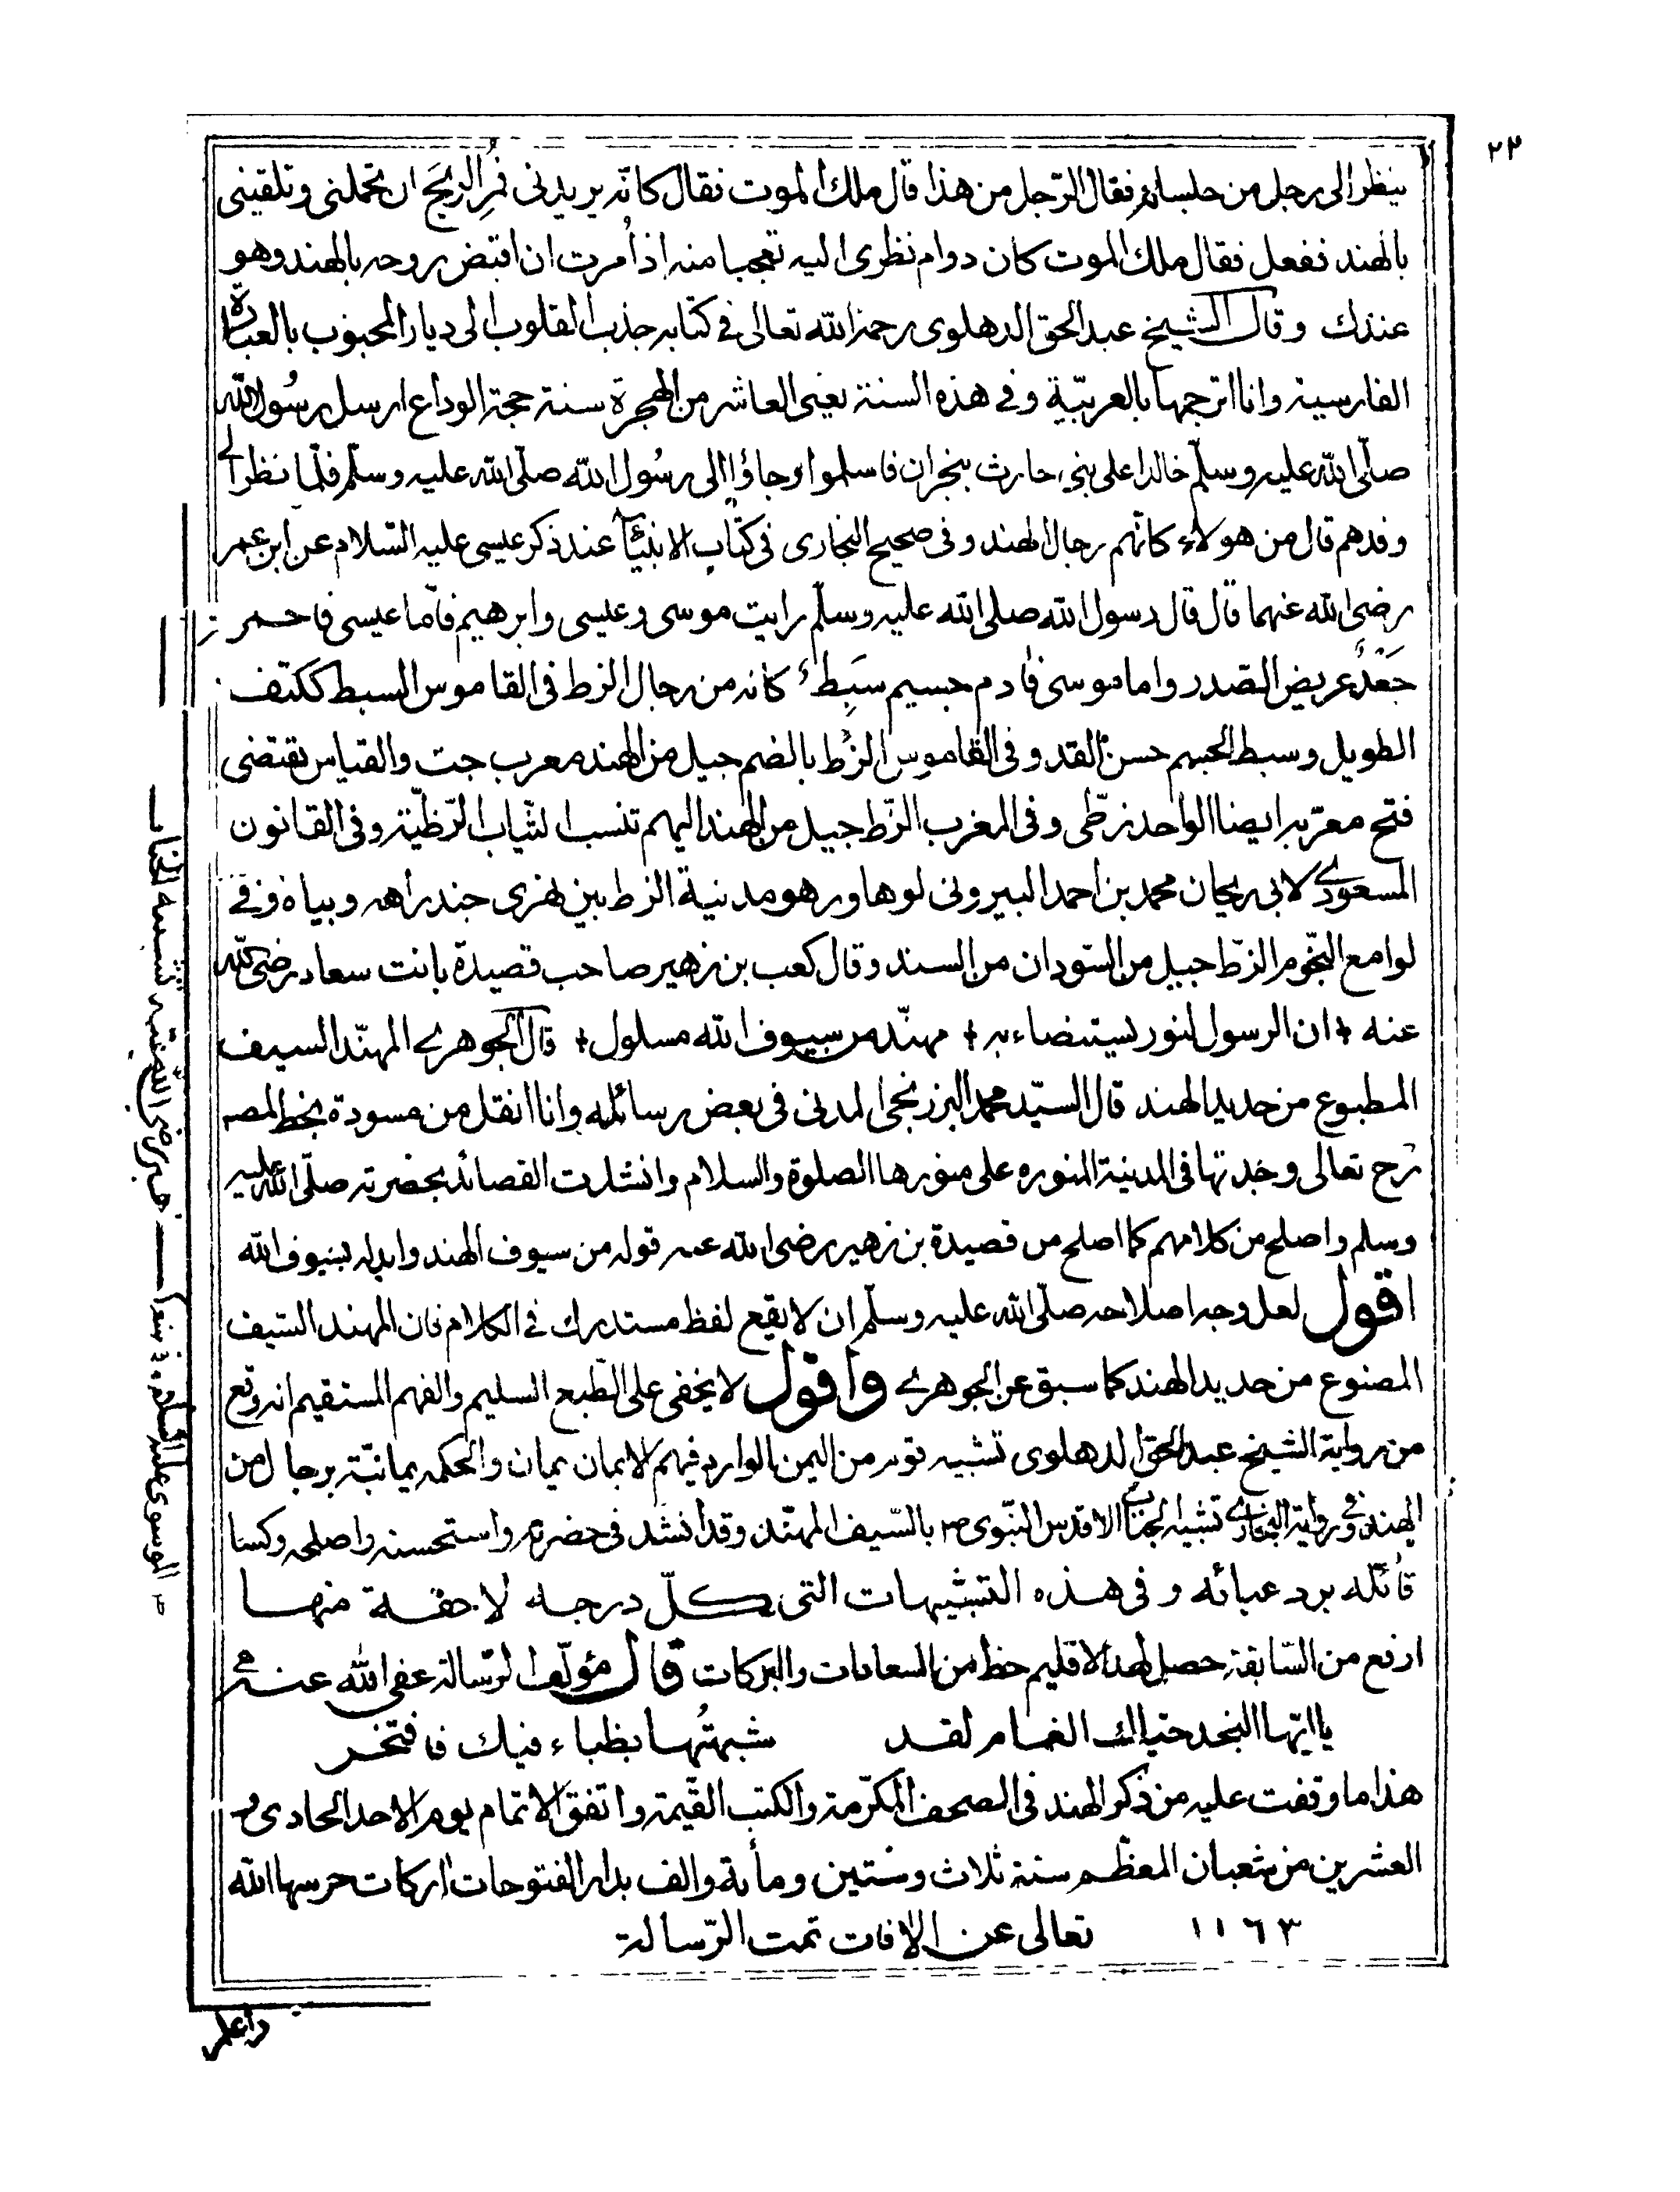 ٢٣
ينظر الى رجل من جلسائه فقال الرّجل من هذا قال ملك الموت فقال كانّه يريدنى فمُرِ الريحَ ان تحملنى وتلقينى
بالهند ففعل فقال ملك الموت كان دوام نظرى اليه تعجبا منه اذ اُمرت ان اقبض روحه بالهند وهو
عندك وقال الشيخ عبد الحق الدهلوى رحمة الله تعالى فى كتابه جذب القلوب الى ديار المحبوب بالعبارة
الفارسية وانا اترجمها بالعربيّة وفى هذه السنة يعنى العاشر من الهجرة سنة حجة الوداع ارسل رسُول الله
صلّى الله عليه وسلّم خالدا على بنى حارث بنجران فاسلموا وجاؤا الى رسُول الله صلّى الله عليه وسلّم فلّما نظر الى
وفدهم قال من هولاء كانّهم رجال الهند وفى صحيح البخارى فى كتاب الانبيآء عند ذكر عيسى عليه السّلام عن ابن عمر
رضى الله عنهما قال قال رسول الله صلى الله عليه وسلّم رايت موسى وعيسى وابرهيم فامّا عيسى فاحمر
جَعْدٌ عريض الصّدر واما موسى فادم جسيم سَبِط كانه من رجال الزط فى القاموس السبط ككتف
الطويل وسبط الجسم حسن القد وفى القاموس الزُط بالضم جيل من الهند معرب جت والقياس يقتضى
فتح معرّبه ايضا الواحد زطّى وفى المغرب الزّط جيل من الهند اليهم تنسب الثياب الزّطّية وفى القانون
المسعودى لابى ريحان محمد بن احمد البيرونى لوهاور هو مدنية الزط بين نهرى جندراهه وبياه وفى
لوامع النّجوم الزّط جيل من السّودان من السند وقال كعب بن زهير صاحب قصيدة بانت سعاد رضى الله
عنه ان الرسول لنور يستضاء به مهنّد من سيوف الله مسلول قال الجوهرى المهنّد السيف
المطبوع من حديد الهند قال السيّد محمد البرزنجى المدنى فى بعض رسائله وانا انقل من مسودة بخط المصـ
رح تعالى وجدتها فى المدينة المنوره على منورها الصلوة والسلام وانشدت القصائد بحضرته صلّى الله عليه
وسلم واصلح من كلامهم كما اصلح من قصيدة بن زهير رضى الله عنه قوله من سيوف الهند وابدله بسيوف الله
اقول لعل وجه اصلاحه صلّى الله عليه وسلّم ان لا يقع لفظ مستدرك فى الكلام فان المهند السّيف
المصنوع من حديد الهند كما سبق عن الجوهرى واقول لا يخفى على الطّبع السليم والفهم المستقيم انه وقع
من رواية الشيخ عبد الحق الدهلوى تشبيه قوم من اليمن الوارد فيهم الايمان يمان والحكمه يمانيّة برجال من
الهند وفى رواية البخارى تشبيه الجناب الاقدس النّبوى ص بالسّيف المهنّد وقد انشد فى حضرته واستحسنه واصلحه وكسا
قائله برد عبائه وفى هذه التشبيهات التى كلّ درجه لاحقة منها
ارفع من السّابقة حصل لهذا الاقليم حظ من السعادات والبركات قال مؤلّف الرّسالة عفى الله عنه
يا ايّها النجد حيا لك الغمام لقد شبهتُها بظباء فيك فافتخر
هذا ما وقفت عليه من ذكر الهند فى الصحف المكرّمة والكتب القيّمة واتفق الاتمام يوم الاحد الحادى و
العشرين من شعبان المعظم سنة ثلاث وستين ومأية والف بدار الفتوحات اركات حرسها الله
١١٦٣ تعالى عن الافات تمت الرّسالة
واعلم